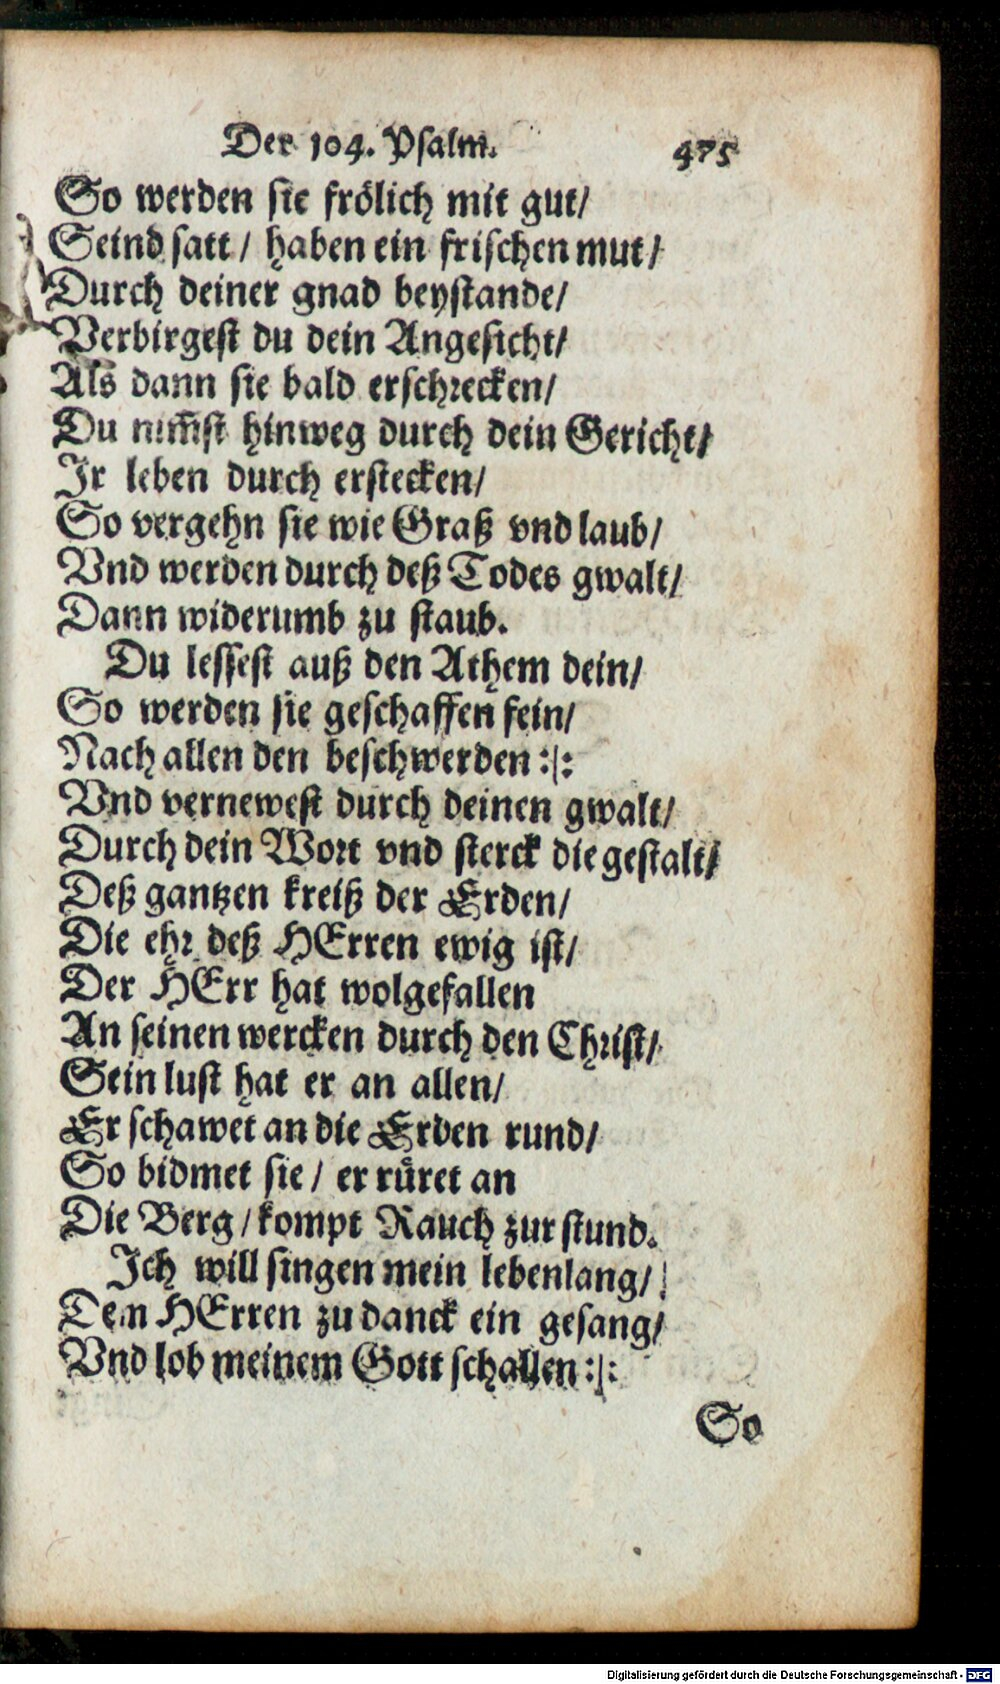 Der 104. Psalm. 475
So werden sie frölich mit gut/
Seind satt / haben ein frischen mut/
Durch deiner gnad beystande/
Verbirgest du dein Angesicht/
Als dann sie bald erschrecken/
Du nim̄st hinweg durch dein Gericht/
Ir leben durch erstecken/
So vergehn sie wie Graß vnd laub/
Vnd werden durch deß Todes gwalt/
Dann widerumb zu staub.
Du lessest auß den Athem dein/
So werden sie geschaffen fein/
Nach allen den beschwerden :|:
Vnd vernewest durch deinen gwalt/
Durch dein Wort vnd sterck die gestalt/
Deß gantzen kreiß der Erden/
Die ehr deß HErren ewig ist/
Der HErr hat wolgefallen
An seinen wercken durch den Christ/
Sein lust hat er an allen/
Er schawet an die Erden rund/
So bidmet sie / er rüret an
Die Berg / kompt Rauch zur stund.
Ich will singen mein lebenlang/
Dem HErren zu danck ein gesang/
Vnd lob meinem Gott schallen :|:
So
Digitalisierung gefördert durch die Deutsche Forschungsgemeinschaft - DFG